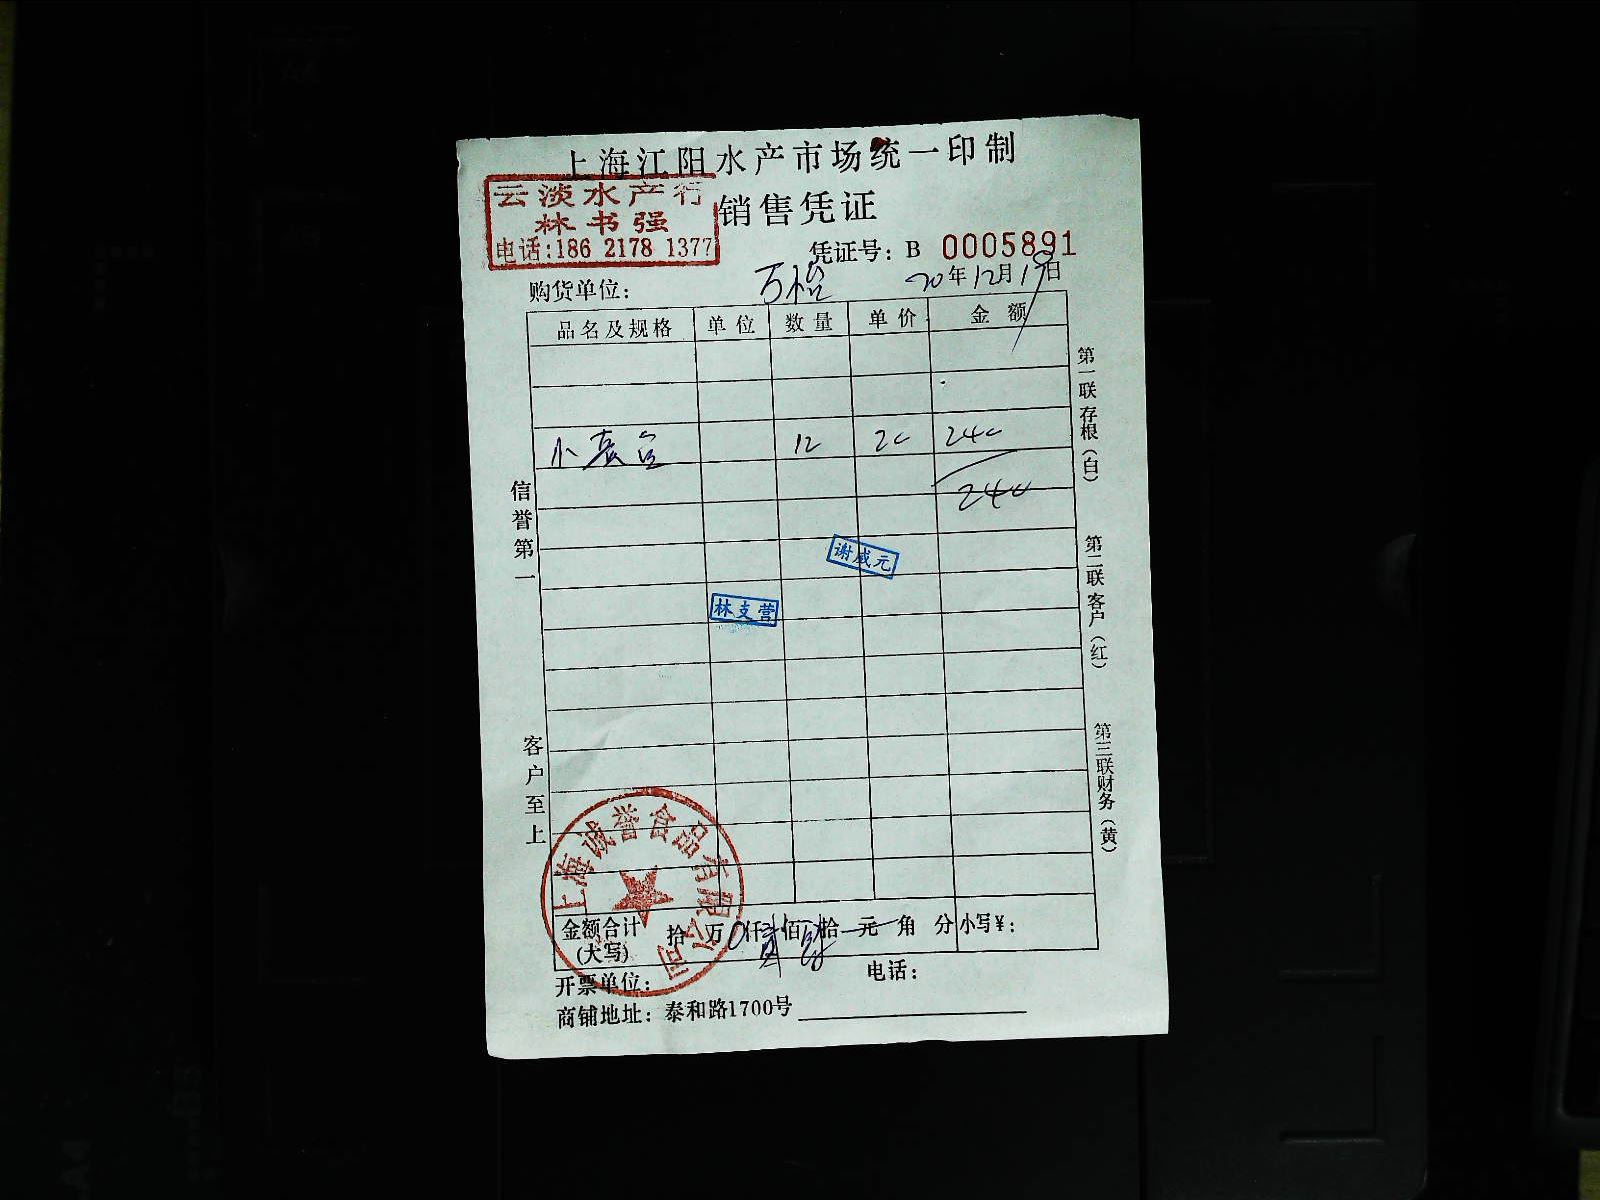 上海江阳水产市场统一印制
云淡水产行
林书强
电话:186 2178 1377
销售凭证
凭证号: B 0005891
购货单位: 万怡 20年12月19日
品名及规格 单位 数量 单价 金额
小 12 20 240
240
谢咸元
林支营
信誉第一
客户至上
第一联存根(白)
第二联客户(红)
第三联财务(黄)
上海诚誉食品有限公司
金额合计(大写) 拾 万 0仟贰佰肆拾 元 角 分 小写¥:
开票单位: 电话:
商铺地址: 泰和路1700号